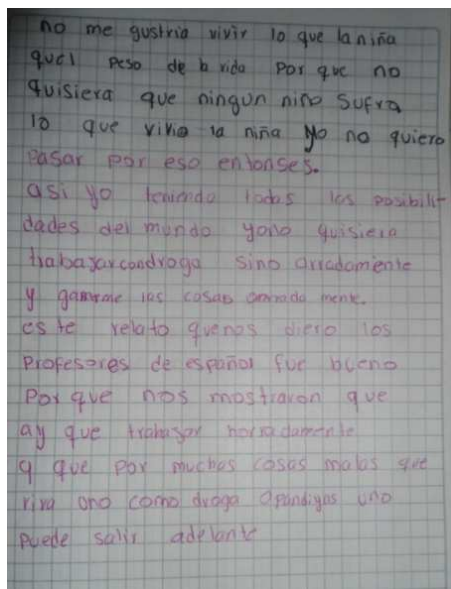 no me gustria vivir lo que la niña
quel peso de la vida por que no
quisiera que ningun niño sufra
lo que vivio la niña yo no quiero
pasar por eso entonses.
asi yo teniendo todas las posibilit-
dades del mundo yono quisiera
trabajar con droga sino orradamente
y ganarme las cosas orrada mente.
es te relato quenos diero los
profesores de español fue bueno
Por que nos mostraron que
ay que trabajar horradamente
y que por muchas cosas malas que
viva uno como droga o pandiyas uno
puede salir adelante